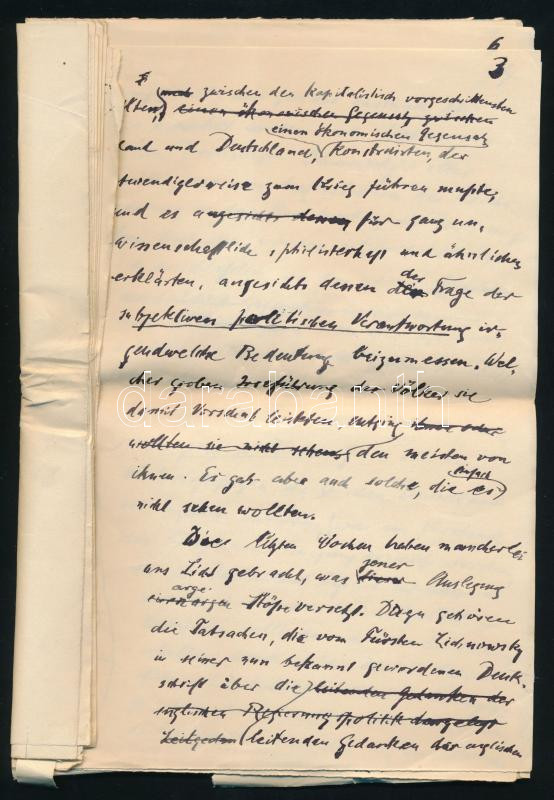 6
3
zwischen den kapitalistisch vorgeschrittensten
einen ökonomischen Gegensatz zwischen
einen ökonomischen Gegensatz
land und Deutschland, konstruirten, der
twendigerweise zum Krieg führen musste,
und es angesichts denen für ganz un-
wissenschaftlich, philisterhaft und ähnliches
erklärten, angesichts dessen der Frage der
subjektiven politischen Verantwortung ir-
gendwelche Bedeutung beizumessen. Wel-
cher groben Irreführung der Völker sie
damit Vorschub leisteten, entging
wollten sie nicht sehen den meisten von
ihnen. Es gab aber auch solche, die es einfach
nicht sehen wollten.
Die letzten Wochen haben mancherlei
ans Licht gebracht, was jener Auslegung
arge Stösse versetzt. Dazu gehören
die Tatsachen, die vom Fürsten Lichnowsky
in seiner nun bekannt gewordenen Denk-
schrift über die leitenden Gedanken der
englischen Regierungspolitik dargelegt
Leitgedan leitenden Gedanken der englischen
darabanth